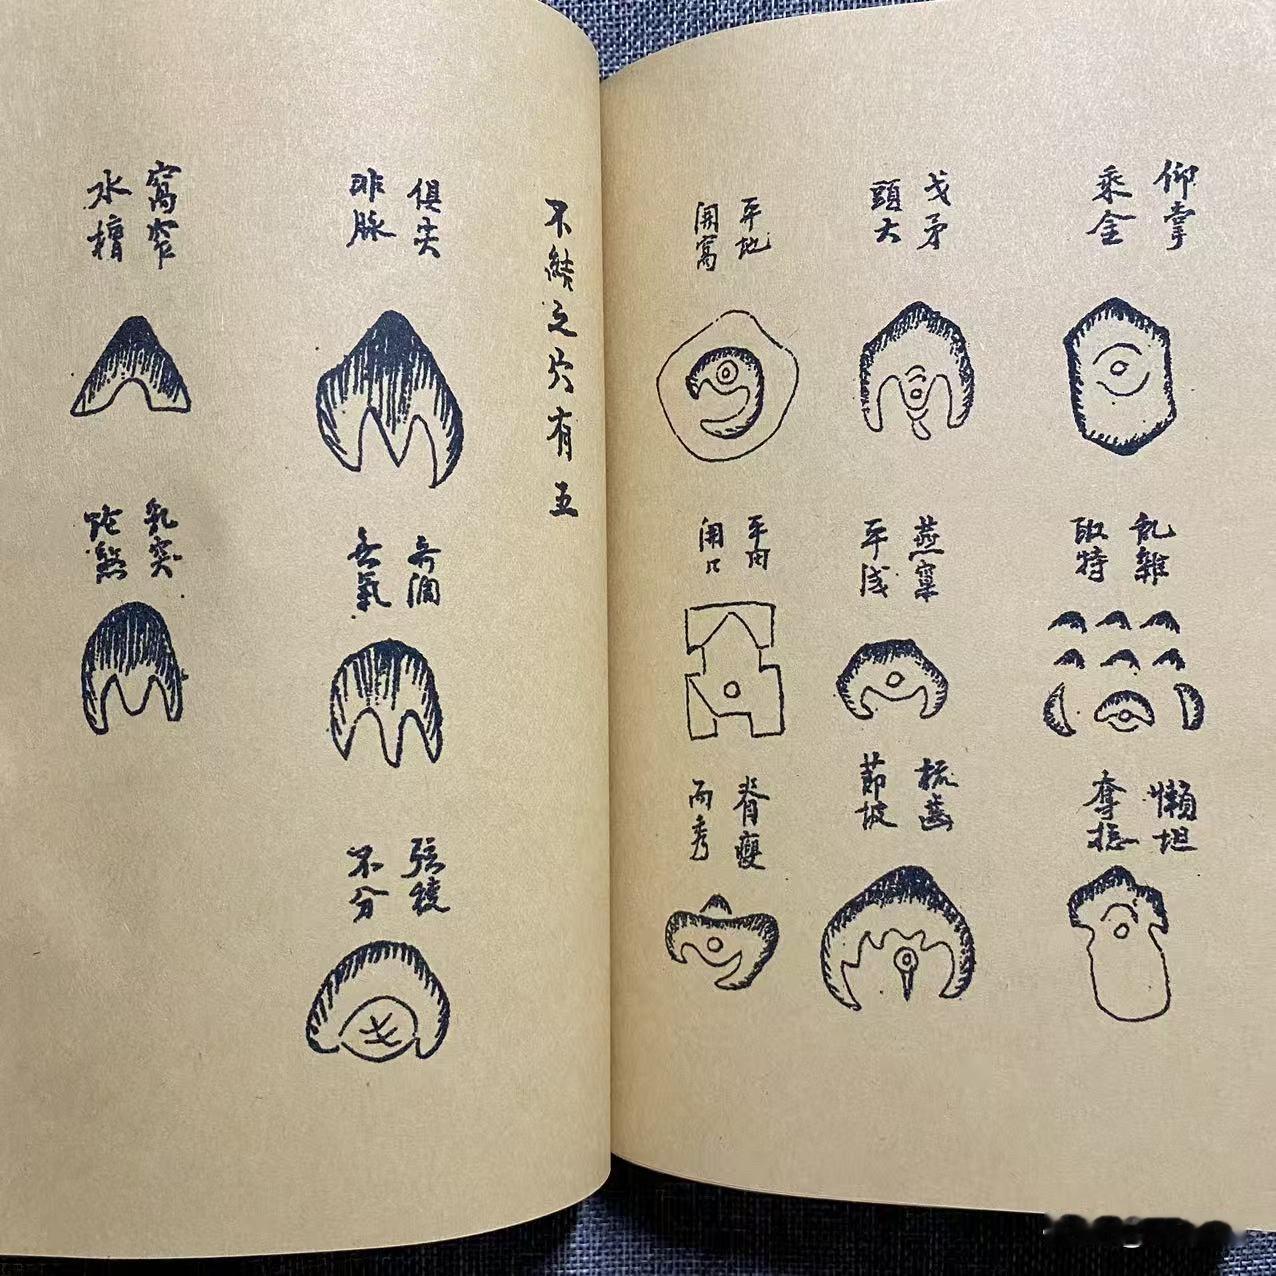 仰掌
乘金
乱雜
取特
懶坦
奪摠
戈矛
頭大
燕窠
平浅
梳齒
節坡
平地
開窩
平田
開口
脊瘦
而秀
不結之穴有五
俱尖
非脉
無氣
弦稜
不分
窩窄
水槽
乳突
陀煞